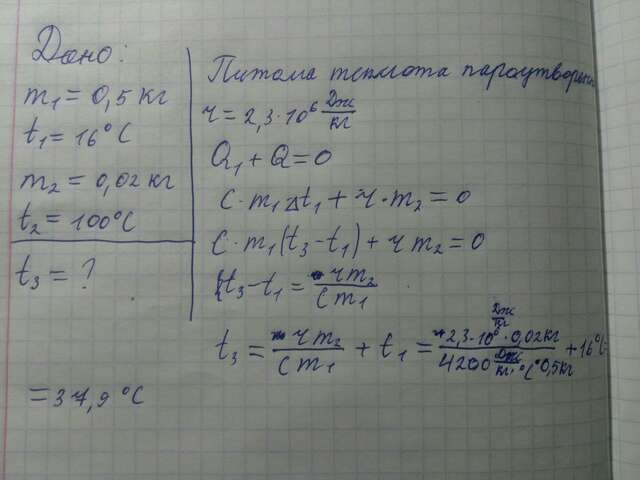 Дано:
m₁ = 0,5 кг
t₁ = 16°C
m₂ = 0,02 кг
t₂ = 100°C
t₃ = ?
= 37,9 °C
Питома теплота пароутворен
r = 2,3·10⁶ Дж/кг
Q₁ + Q = 0
C·m₁ Δt₁ + r·m₂ = 0
C·m₁(t₃ - t₁) + r m₂ = 0
t₃ - t₁ = r m₂ / C m₁
t₃ = r m₂ / C m₁ + t₁ = 2,3·10⁶ Дж/кг · 0,02 кг / 4200 Дж/кг·°C · 0,5 кг + 16°C